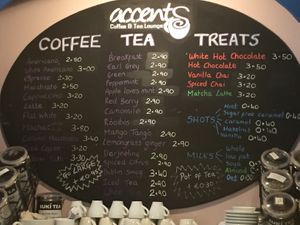 accents
Coffee & Tea Lounge
COFFEE
Americano 2.90
White Americano 3.00
Espresso 2.30
Macchiato
Cappuccino 3.20
Latte 3.20
Flat White
Mocha
TEA
Breakfast 2.90
Earl Grey 2.90
Green 2.90
Peppermint 2.90
Apple loves mint 2.90
Red Berry 2.90
Camomile 2.90
Rooibos 2.90
Mango Tango 2.90
Lemongrass ginger 2.90
Darjeeling 2.90
Spiced Citrus 2.90
Iced Tea
Chai
TREATS
White Hot Chocolate 3.50
Hot Chocolate 3.50
Vanilla Chai 3.20
Spiced Chai 3.20
Matcha Latte 3.20
SHOTS
Mint 0.40
Sugar free caramel 0.40
Caramel 0.40
Hazelnut 0.40
Vanilla 0.40
MILKS
Whole
Low fat
Soya
Almond
Oat
Get
LARGE
Pot of Tea
SUKI TEA